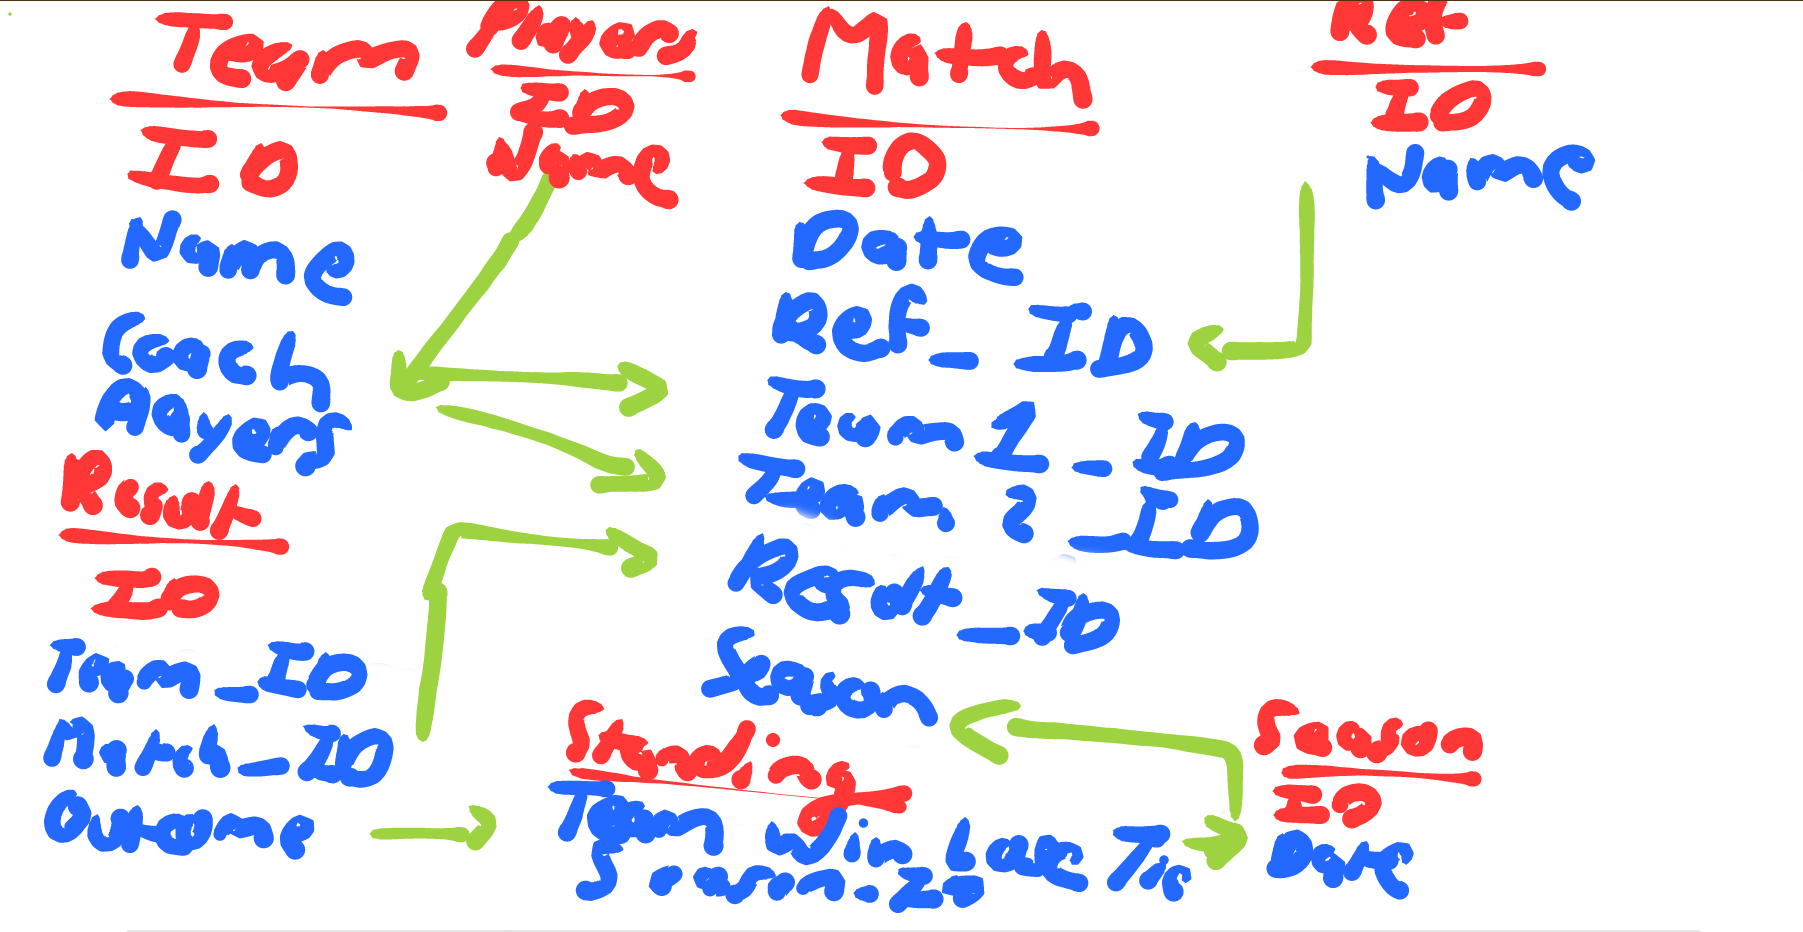 Team
ID
Name
Coach
Players
Players
ID
Name
Match
ID
Date
Ref_ID
Team 1_ID
Team 2_ID
Result_ID
Season
Ref
ID
Name
Result
ID
Team_ID
Match_ID
Outcome
Standing
Team Win Lose Tie
Season_ID
Season
ID
Date